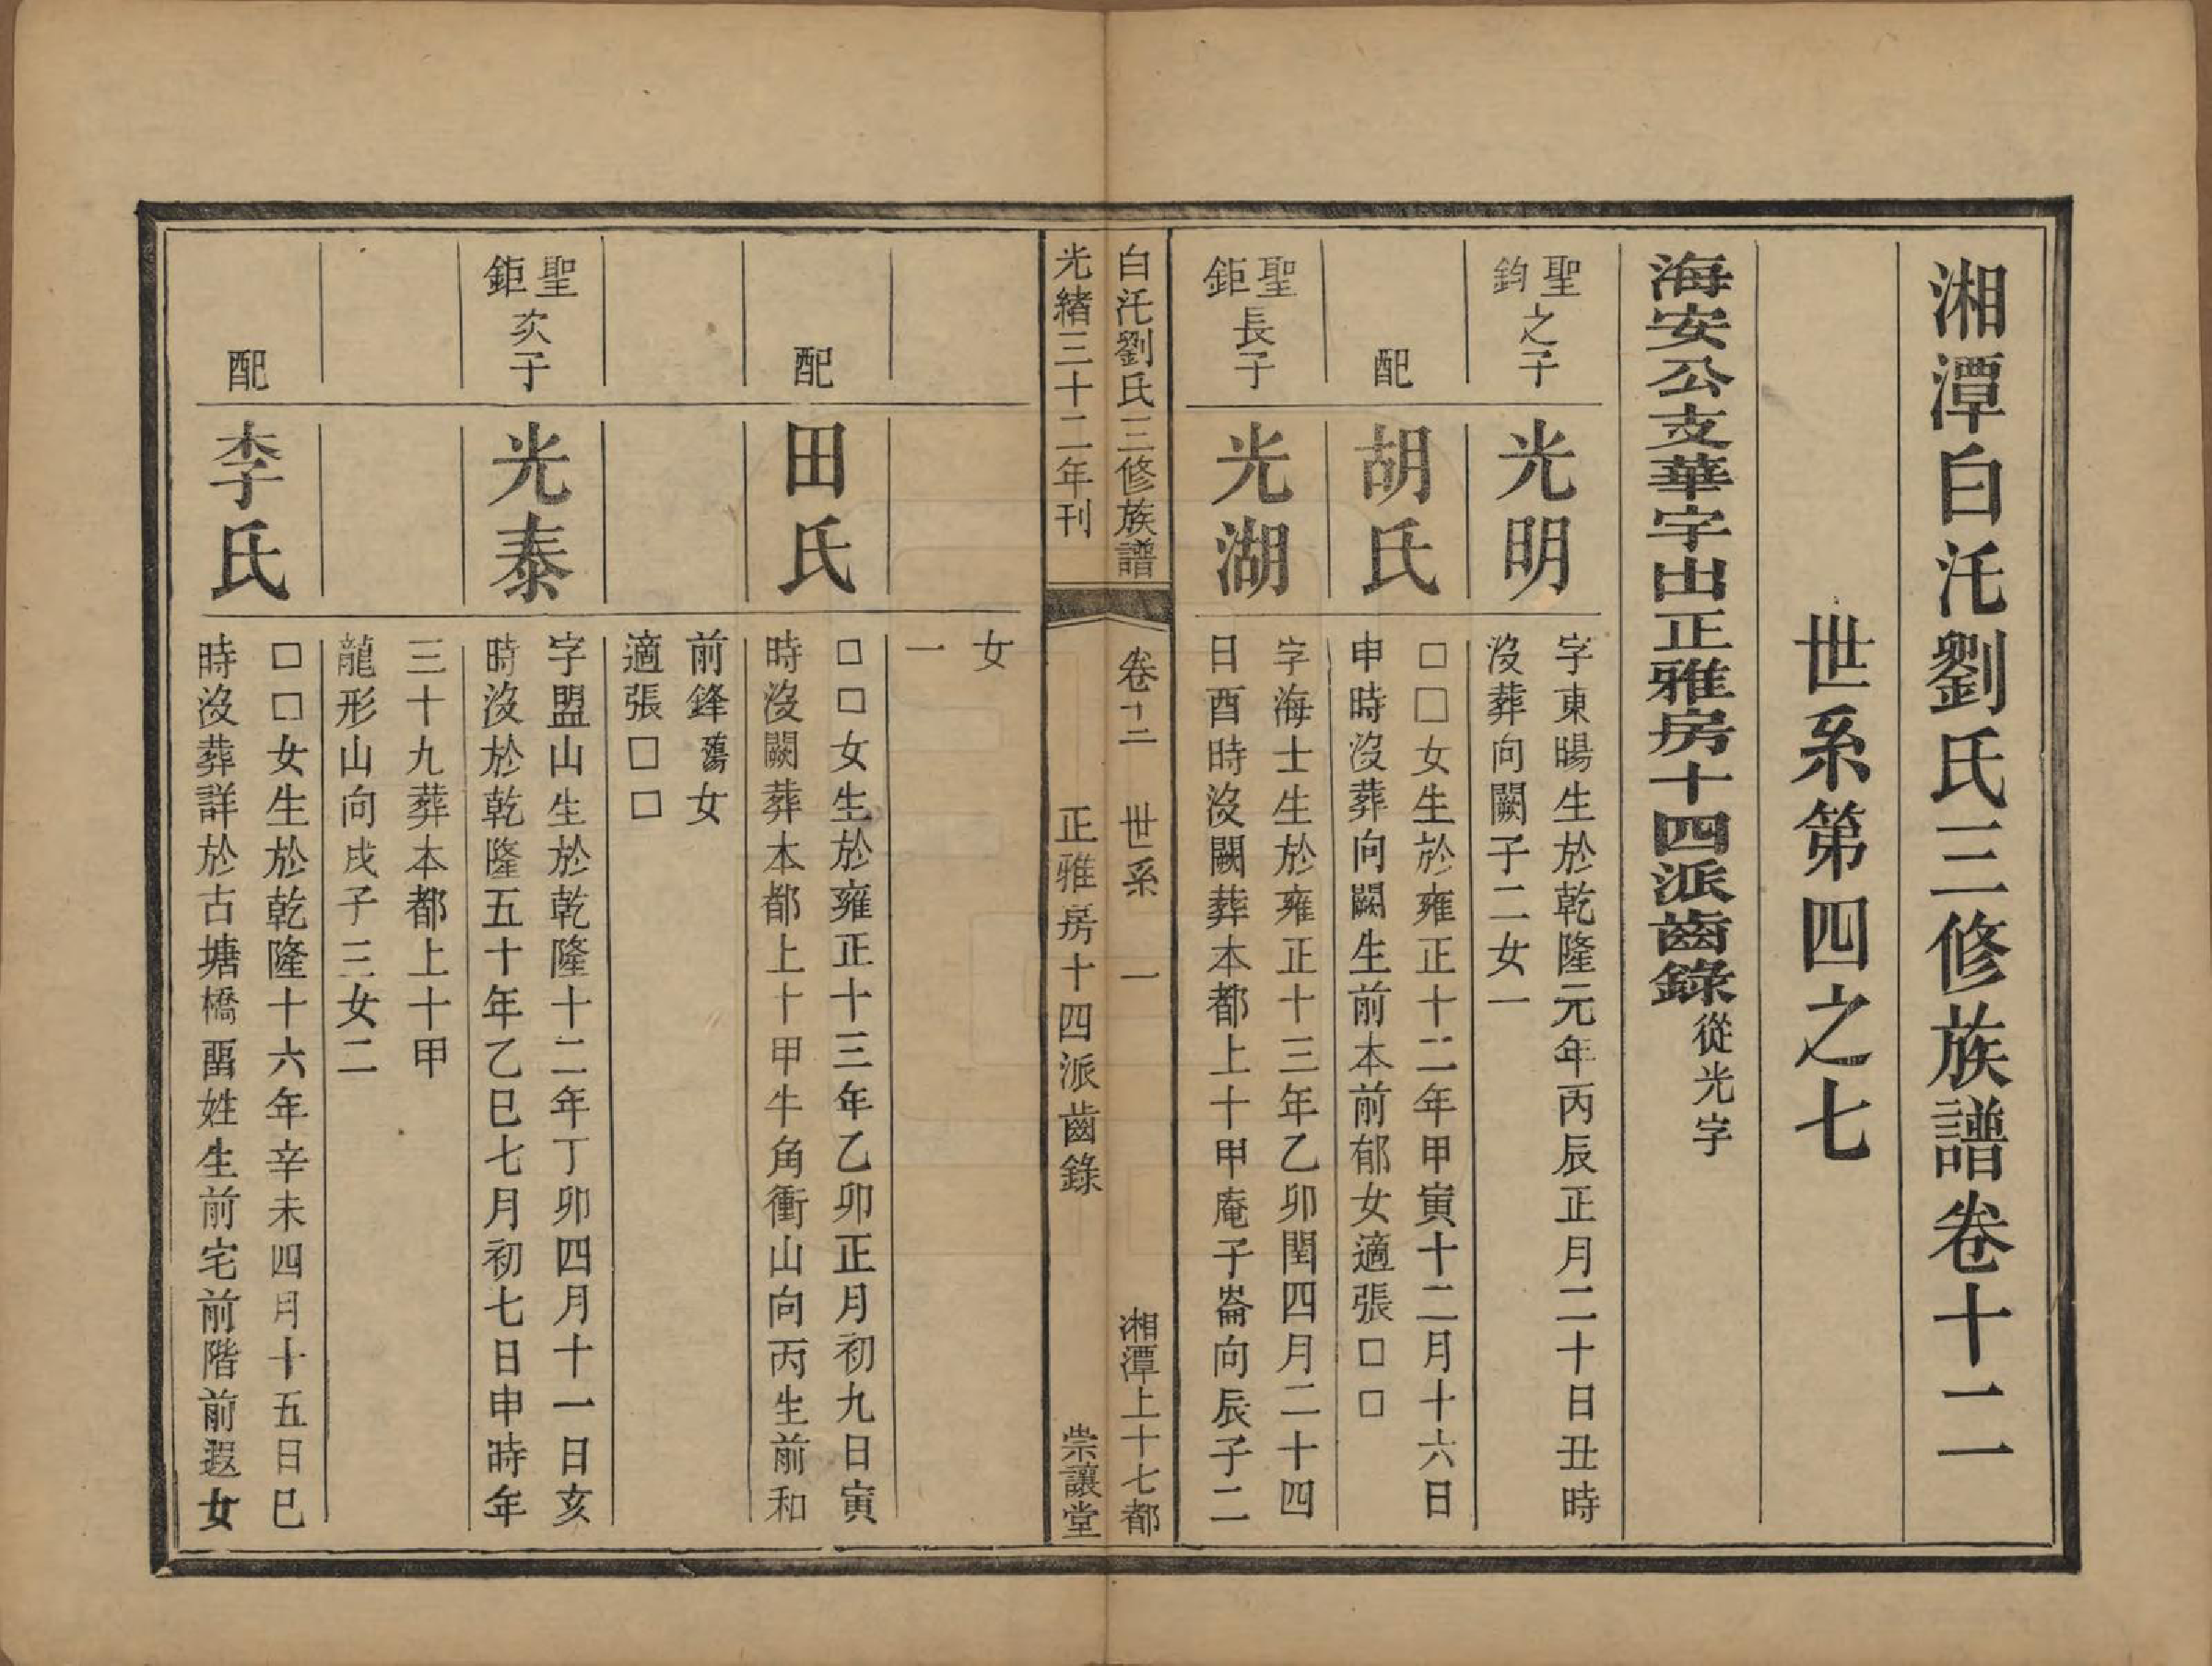 湘潭白汑劉氏三修族譜卷十二
世系第四之七
海安公支華字出正雅房十四派齒錄從光字
聖鈞之子
光明
字東暘生於乾隆元年丙辰正月二十日丑時
沒葬向闕子二女一
配
胡氏
□□女生於雍正十二年甲寅十二月十六日
申時沒葬向闕生前本前郁女適張□□
聖鉅長子
光湖
字海士生於雍正十三年乙卯閏四月二十四
日酉時沒闕葬本都上十甲庵子崙向辰子二
白汑劉氏三修族譜
卷十二
世系
一
湘潭上十七都
光緒三十二年刊
正雅房十四派齒錄
崇讓堂
女
一
配
田氏
□□女生於雍正十三年乙卯正月初九日寅
時沒闕葬本都上十甲牛角衝山向丙生前和
前鋒蕩女
適張□□
聖鉅次子
光泰
字盟山生於乾隆十二年丁卯四月十一日亥
時沒於乾隆五十年乙巳七月初七日申時年
三十九葬本都上十甲
龍形山向戌子三女二
配
李氏
□□女生於乾隆十六年辛未四月十五日巳
時沒葬詳於古塘橋畱姓生前宅前階前遐女